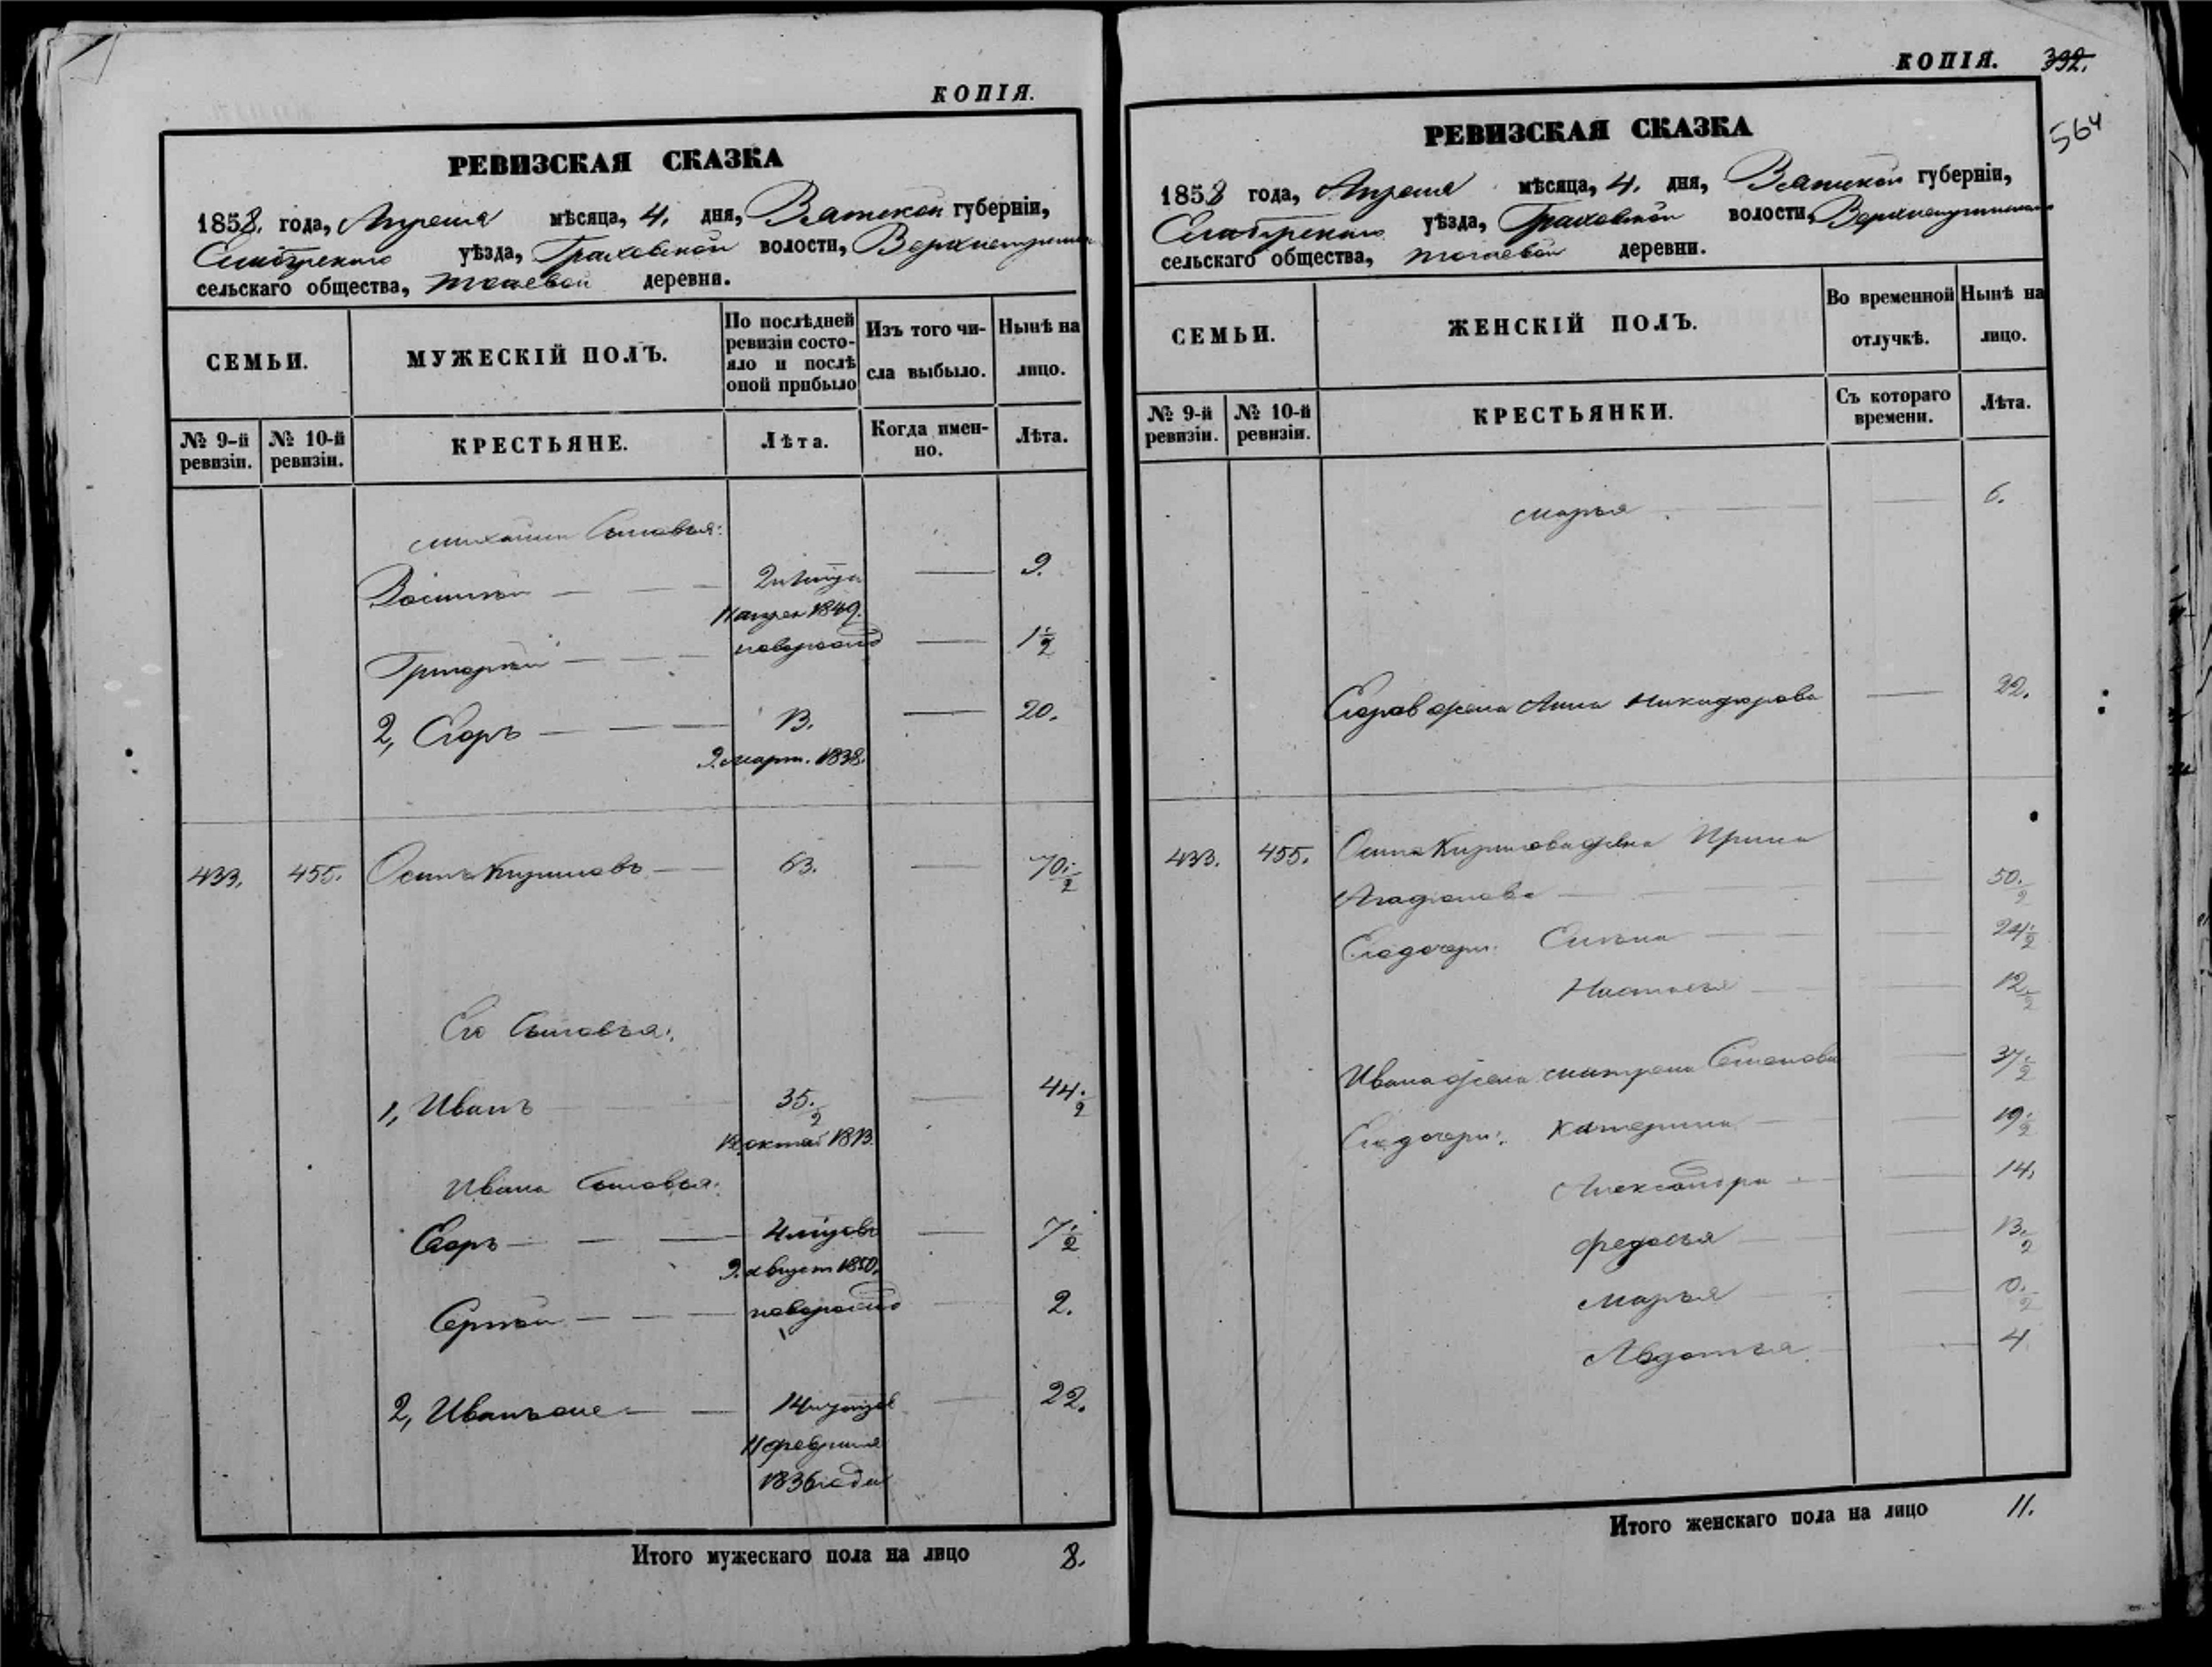 КОПІЯ.
РЕВИЗСКАЯ СКАЗКА
1858. года, Апреля мѣсяца, 4. дня, Вятской губерніи,
Елабужского уѣзда, Граховской волости,
сельскаго общества, деревни.
СЕМЬИ.
МУЖЕСКІЙ ПОЛЪ.
По послѣдней ревизіи состояло и послѣ оной прибыло
Изъ того числа выбыло.
Нынѣ на лицо.
№ 9-й ревизіи.
№ 10-й ревизіи.
КРЕСТЬЯНЕ.
Лѣта.
Когда именно.
Лѣта.
Михаила Сыновья:
Василий — — 9.
11 апрел 1849.
Григорий — — новорожд — 1 1/2
2, Егоръ — — 13. — 20.
9. март. 1838.
433. 455. Осипъ Кириловъ — 63. — 70. 1/2
Его Сыновья:
1, Иванъ — 35. 1/2 — 44. 1/2
октяб 1813.
Ивана Сыновья:
Егоръ — — — — 7 1/2
9. август 1850.
Сергей — — — новорожд — 2.
2, Иванъ оне — — 14 — 22.
11 февраля
1836 года
Итого мужескаго пола на лицо 8.
КОПІЯ. 392.
564
РЕВИЗСКАЯ СКАЗКА
1858 года, Апреля мѣсяца, 4. дня, Вятской губерніи,
Елабужского уѣзда, Граховской волости,
сельскаго общества, деревни.
СЕМЬИ.
ЖЕНСКІЙ ПОЛЪ.
Во временной отлучкѣ.
Нынѣ на лицо.
№ 9-й ревизіи.
№ 10-й ревизіи.
КРЕСТЬЯНКИ.
Съ котораго времени.
Лѣта.
Марья — — 6.
Егора жена Анна Никифорова — 22.
433. 455. Осипа Кирилова жена Ирина
Агафонова — — 50. 1/2
Его дочери: — — 24 1/2
Настасья — — 12 1/2
Ивана жена Матрена Семенова — 37 1/2
Его дочери: Катерина — — 19 1/2
Александра — — 14.
Федосья — — 13. 1/2
Марья — — 0. 1/2
Авдотья — — 4
Итого женскаго пола на лицо 11.